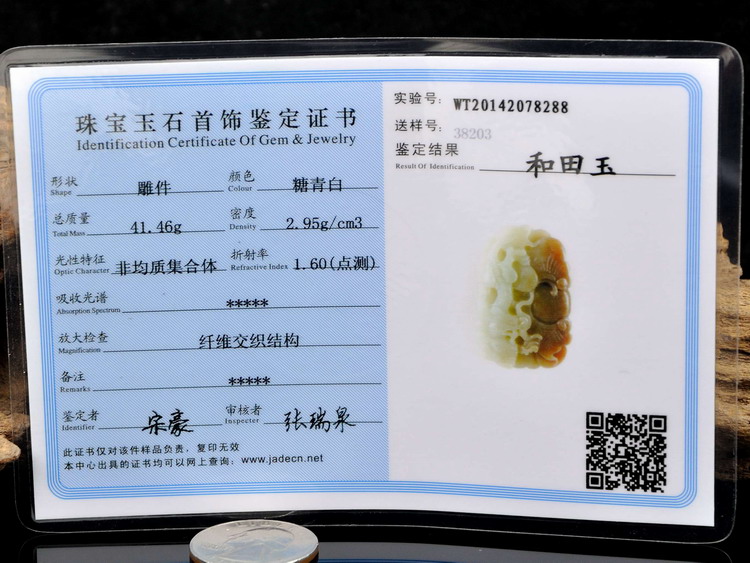 珠宝玉石首饰鉴定证书
Identification Certificate Of Gem & Jewelry
形状 Shape 雕件 颜色 Colour 糖青白
总质量 Total Mass 41.46g 密度 Density 2.95g/cm3
光性特征 Optic Character 非均质集合体 折射率 Refractive Index 1.60(点测)
吸收光谱 Absorption Spectrum *****
放大检查 Magnification 纤维交织结构
备注 Remarks *****
鉴定者 Identifier 宋豪 审核者 Inspecter 张瑞泉
此证书仅对该件样品负责，复印无效
本中心出具的证书均可以网上查询：www.jadecn.net
实验号: WT20142078288
送样号: 38203
鉴定结果 Result Of Identification 和田玉